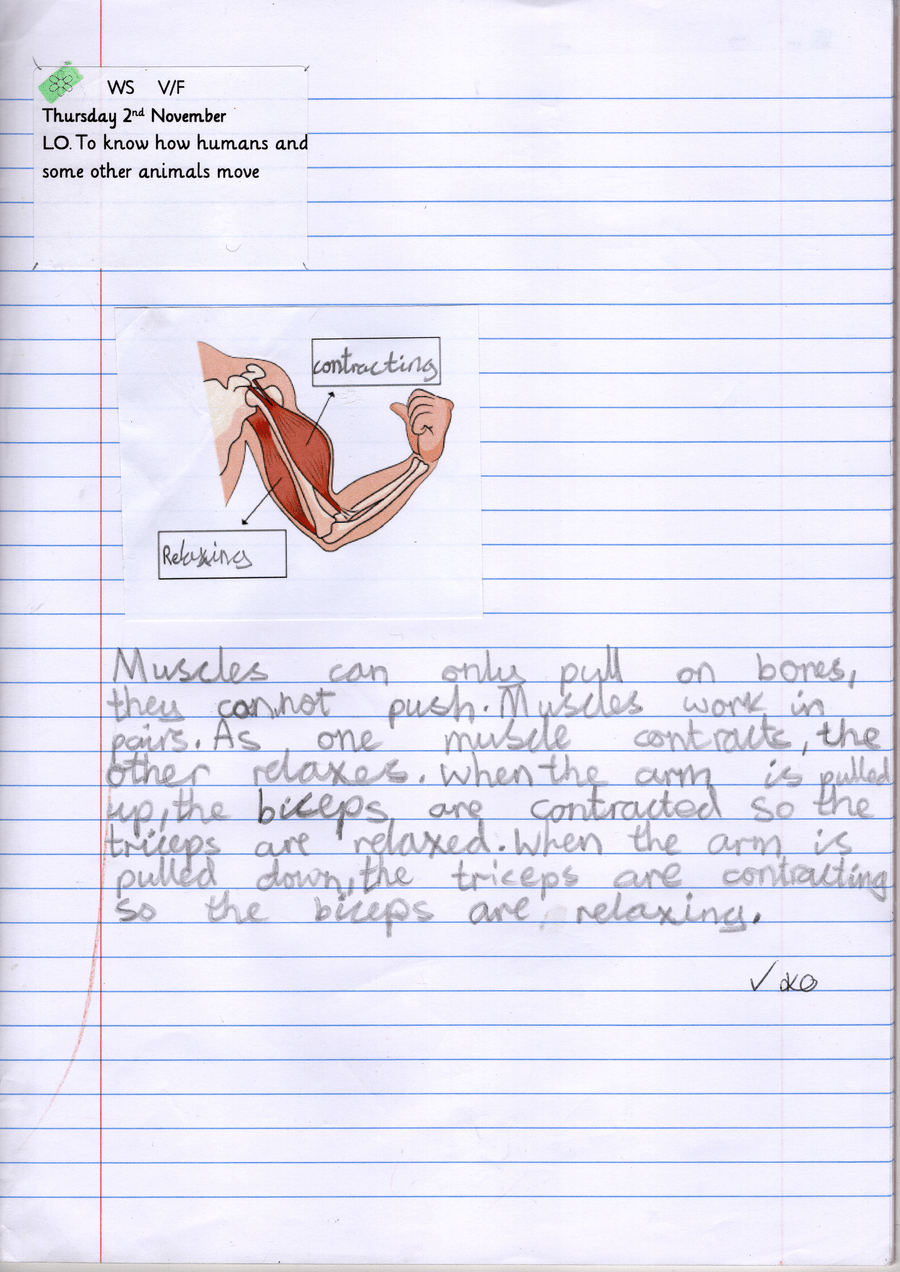 WS V/F
Thursday 2nd November
LO. To know how humans and
some other animals move
contracting
Relaxing
Muscles can only pull on bones,
they cannot push. Muscles work in
pairs. As one muscle contracts, the
other relaxes. When the arm is pulled
up, the biceps are contracted so the
triceps are relaxed. When the arm is
pulled down, the triceps are contracting
so the biceps are relaxing.